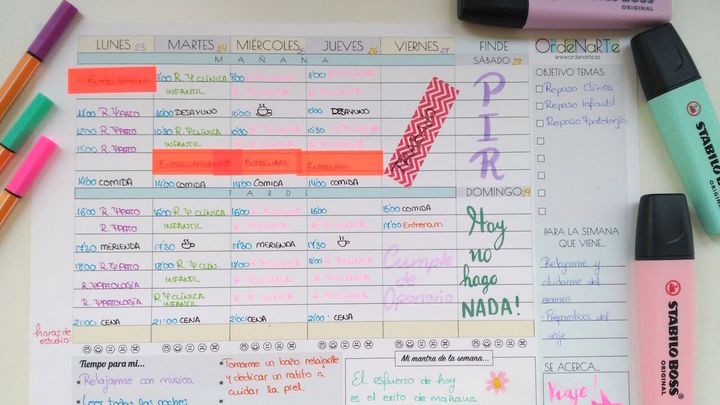 LUNES 23
MARTES 24
MIÉRCOLES 25
JUEVES 26
VIERNES 27
FINDE
OrdeNaRTe
www.ordenarte.es
MAÑANA
SÁBADO 28
OBJETIVO TEMAS:
ENTRENAMIENTO
8:00 R. Ψ CLÍNICA
8:00 R. Ψ CLÍNICA
8:00 R. Ψ CLÍNICA
INFANTIL
R. Ψ CLÍNICA
R. Ψ CLÍNICA
Repaso Clínica
Repaso Infantil
Repaso Ψpatología
P
I
R
11:00 R. ΨPATO
10:00 DESAYUNO
10:00
10:00 DESAYUNO
12:00 R. ΨPATO
10:30 R. Ψ CLÍNICA
10:30 R. Ψ CLÍNICA
10:30 R. Ψ CLÍNICA
INFANTIL
R. Ψ CLÍNICA
R. Ψ CLÍNICA
13:00 R. ΨPATO
ENTRENAMIENTO
ENTRENAM.
ENTRENAM
14:00 COMIDA
14:00 COMIDA
14:00 COMIDA
14:00 COMIDA
TARDE
DOMINGO 29
16:00 R. ΨPATO
16:00 R. Ψ CLÍNICA
16:00 R. Ψ CLÍNICA
16:00
15:00 COMIDA
R. ΨPATO
INFANTIL
R. Ψ CLÍNICA
R. Ψ CLÍNICA
17:00 Entrenam
17:30 MERIENDA
17:30
17:30 MERIENDA
17:30
18:00 R. ΨPATO
18:00 R. Ψ CLIN.
18:00 R. Ψ CLÍNICA
18:00 R. Ψ CLÍNICA
R. ΨPATOLOGÍA
INFANTIL
R. Ψ CLÍNICA
R. Ψ CLÍNICA
R. ΨPATOLOGÍA
R. Ψ CLÍNICA
INFANTIL
R. Ψ CLÍNICA
R. Ψ CLÍNICA
Cumple
de
Hoy
no
hago
NADA!
21:00 CENA
21:00 CENA
21:00 CENA
21:00 CENA
horas de
estudio:
PARA LA SEMANA
QUE VIENE...
Relajarme y
olvidarme del
examen
Preparativos del
viaje
SE ACERCA...
Viaje!
Tiempo para mi...
Relajarme con música
Leer todas las noches
Tomarme un baño relajante
y dedicar un ratito a
cuidar la piel.
Mi mantra de la semana...
El esfuerzo de hoy
es el éxito de mañana
STABILO BOSS
ORIGINAL
STABILO BOSS
ORIGINAL
STABILO BOSS
ORIGINAL